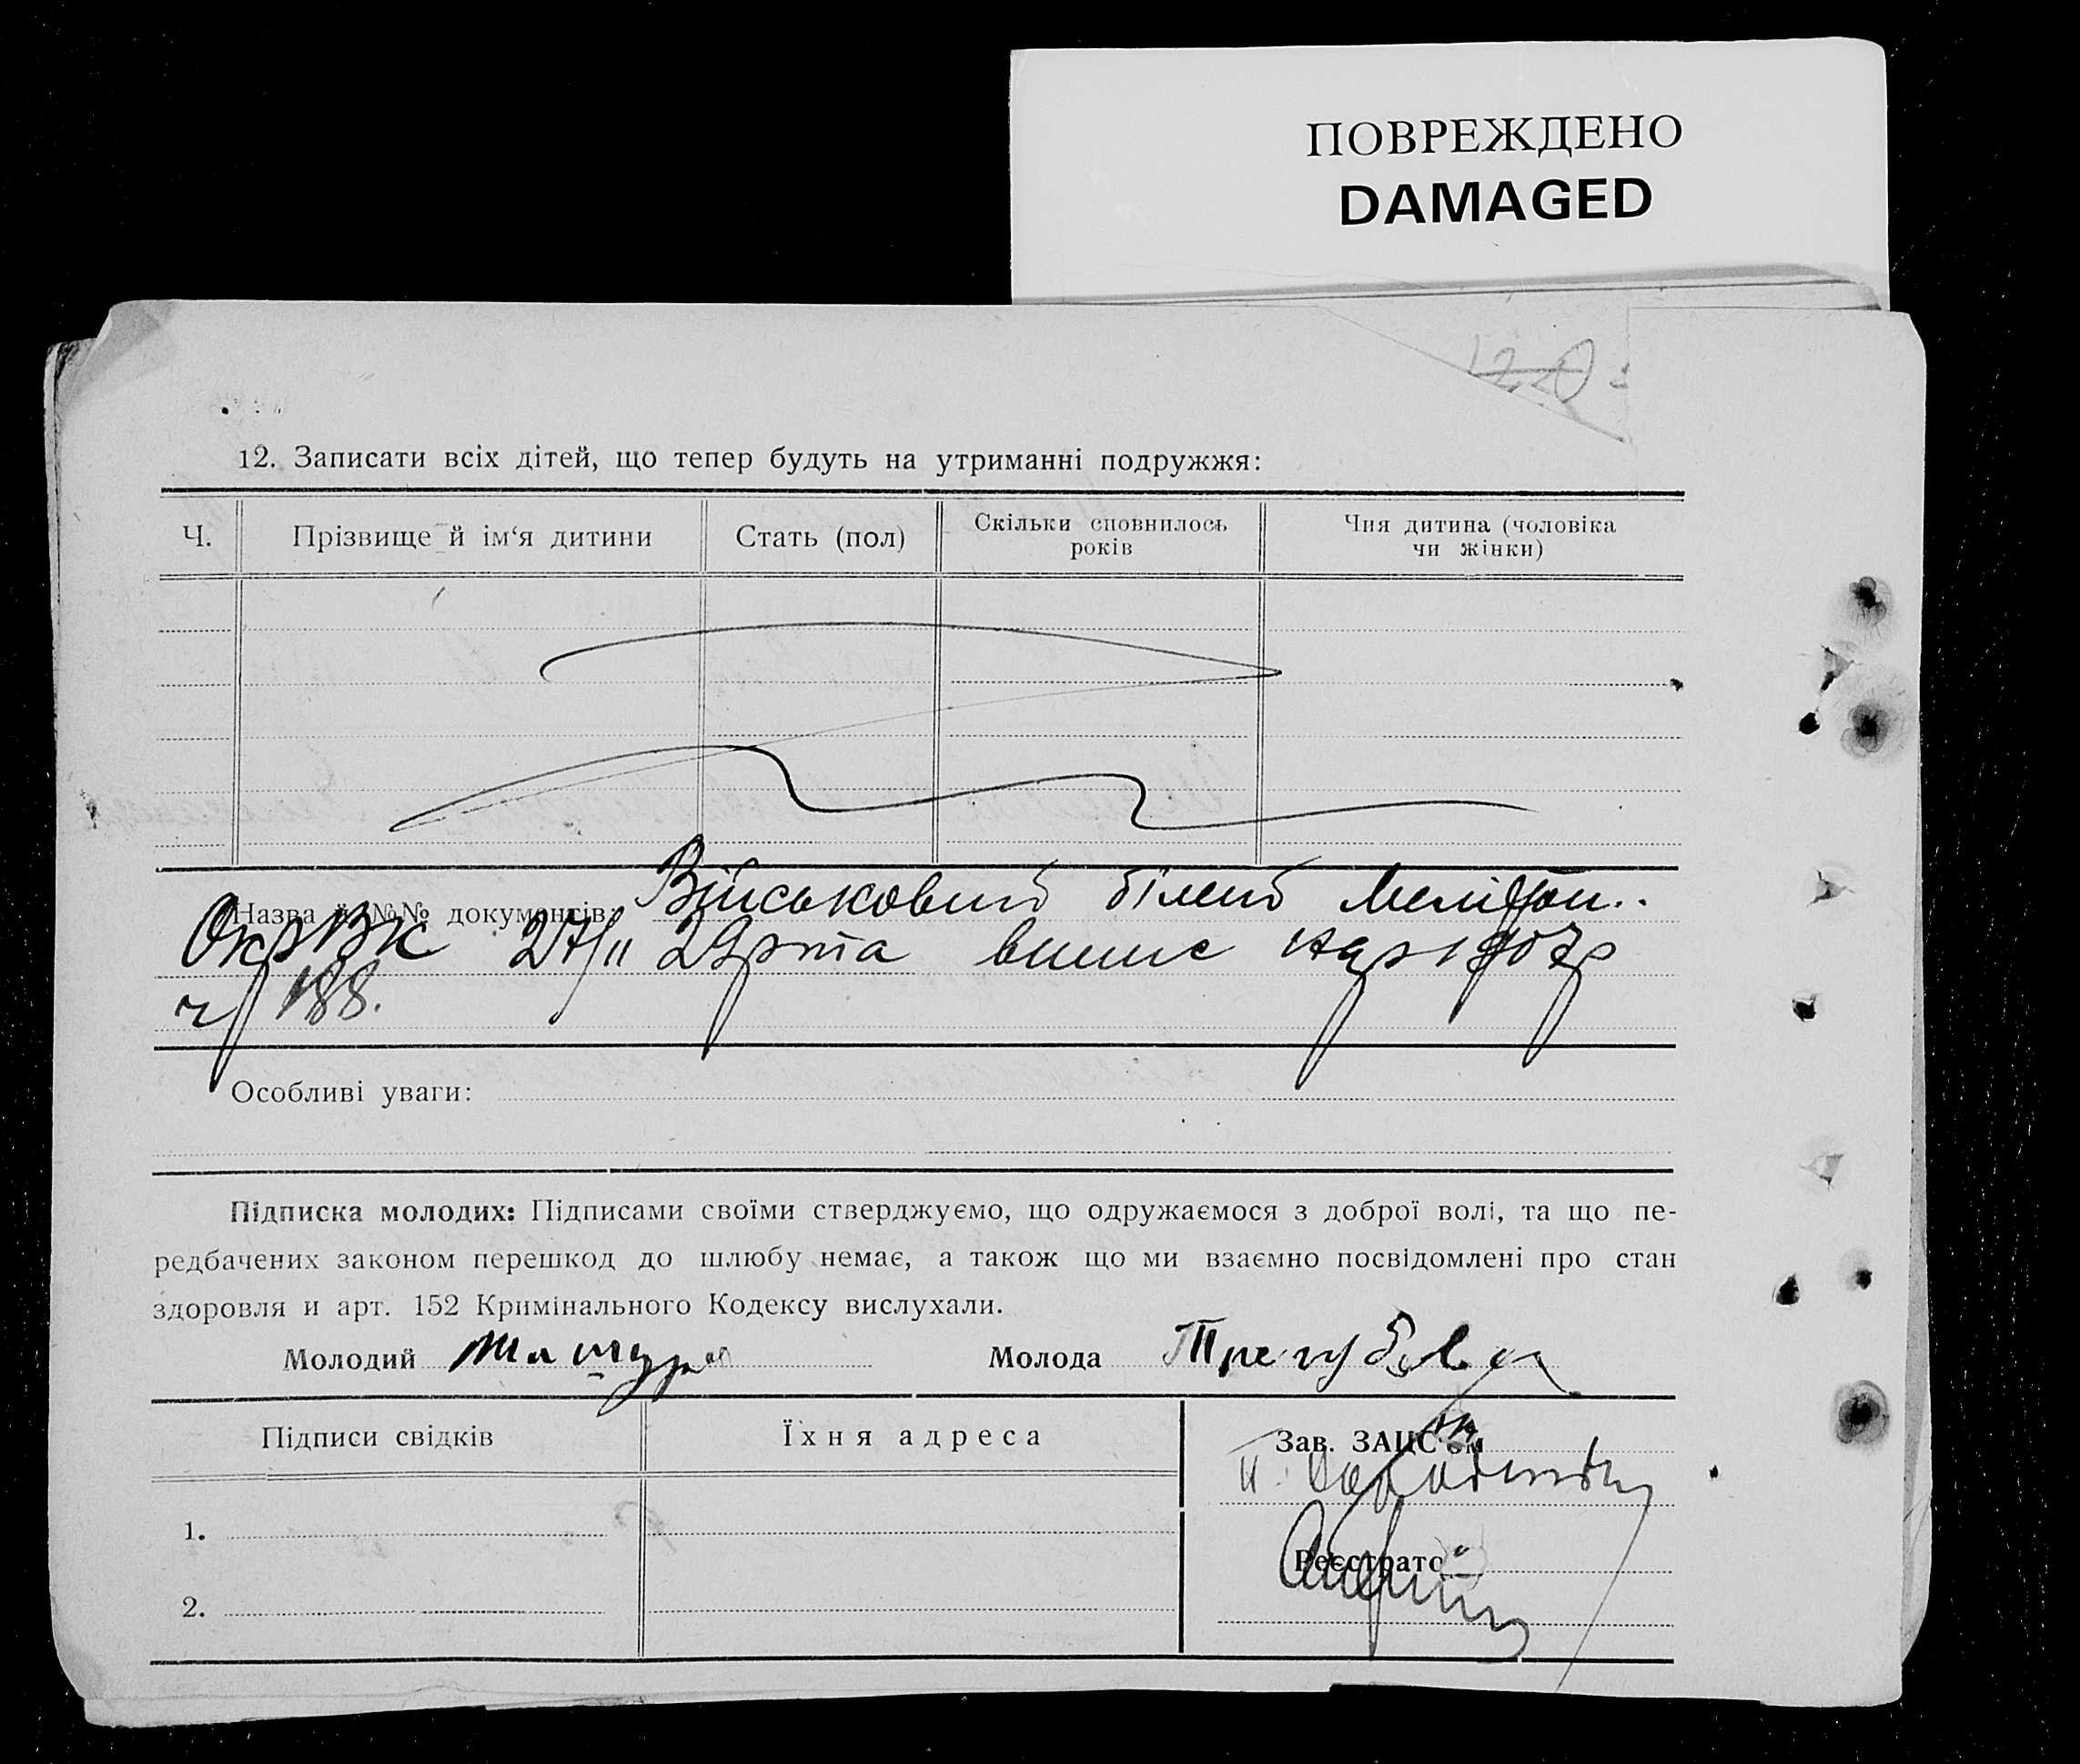 ПОВРЕЖДЕНО
DAMAGED
12. Записати всіх дітей, що тепер будуть на утриманні подружжя:
Ч. Прізвище й ім‘я дитини Стать (пол) Скільки сповнилось років Чия дитина (чоловіка чи жінки)
Назва й №№ документів: Військовий білет Мелітоп..
ОкрВК 27/II 29р та випис нар 1907р
ч 188.
Особливі уваги:
Підписка молодих: Підписами своїми стверджуємо, що одружаємося з доброї волі, та що пе-
редбачених законом перешкод до шлюбу немає, а також що ми взаємно посвідомлені про стан
здоровля и арт. 152 Кримінального Кодексу вислухали.
Молодий Молода
Підписи свідків Їхня адреса Зав. ЗАЦС‘ом
1.
Реєстратор
2.